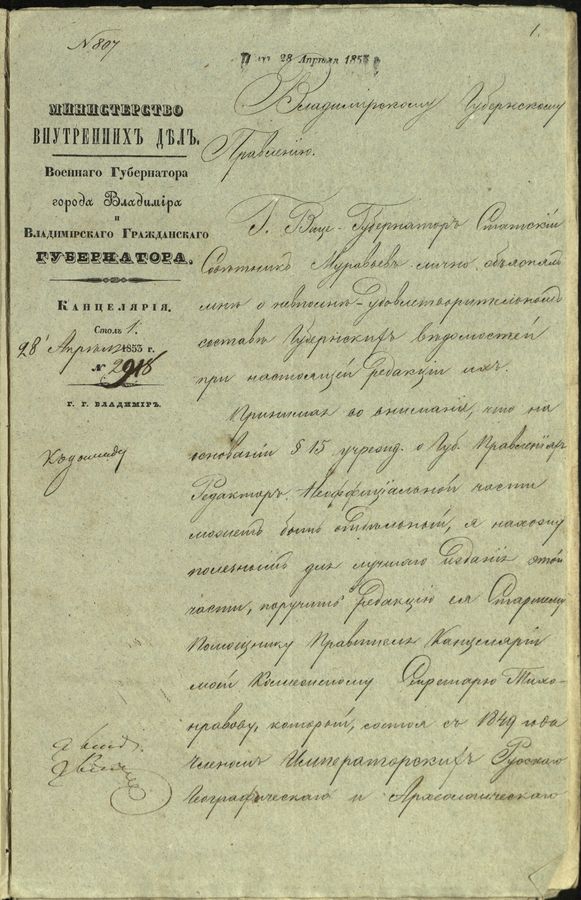 № 807
1.
28 Апрѣля 1853
МИНИСТЕРСТВО
ВНУТРЕННИХЪ ДѢЛЪ.
Военнаго Губернатора
города Владиміра
и
Владимірскаго Гражданскаго
ГУБЕРНАТОРА.
Канцелярія.
Столъ 1.
28 Апрѣля 1853 г.
№ 2918
Г. Г. ВЛАДИМІРЪ.
Къ докладу
Владимірскому Губернскому
Правленію.
Г. Вице-Губернаторъ Статскій
Совѣтникъ Муравьевъ лично объяснял
мнѣ о невполнѣ-удовлетворительномъ
составѣ Губернскихъ вѣдомостей
при настоящей редакціи ихъ.
Принимая во вниманіе, что на
основаніи § 15 учрежд. о Губ. Правленіяхъ
Редакторъ Неоффиціальной части
можетъ быть отдѣльный, я нахожу
полезнымъ для лучшаго изданія этой
части, поручить редакцію ея Старшему
Помощнику Правителя Канцеляріи
моей Коллежскому Секретарю Тихо-
нравову, который, состоя съ 1849 года
членомъ Императорскихъ Русскаго
Географическаго и Археологическаго